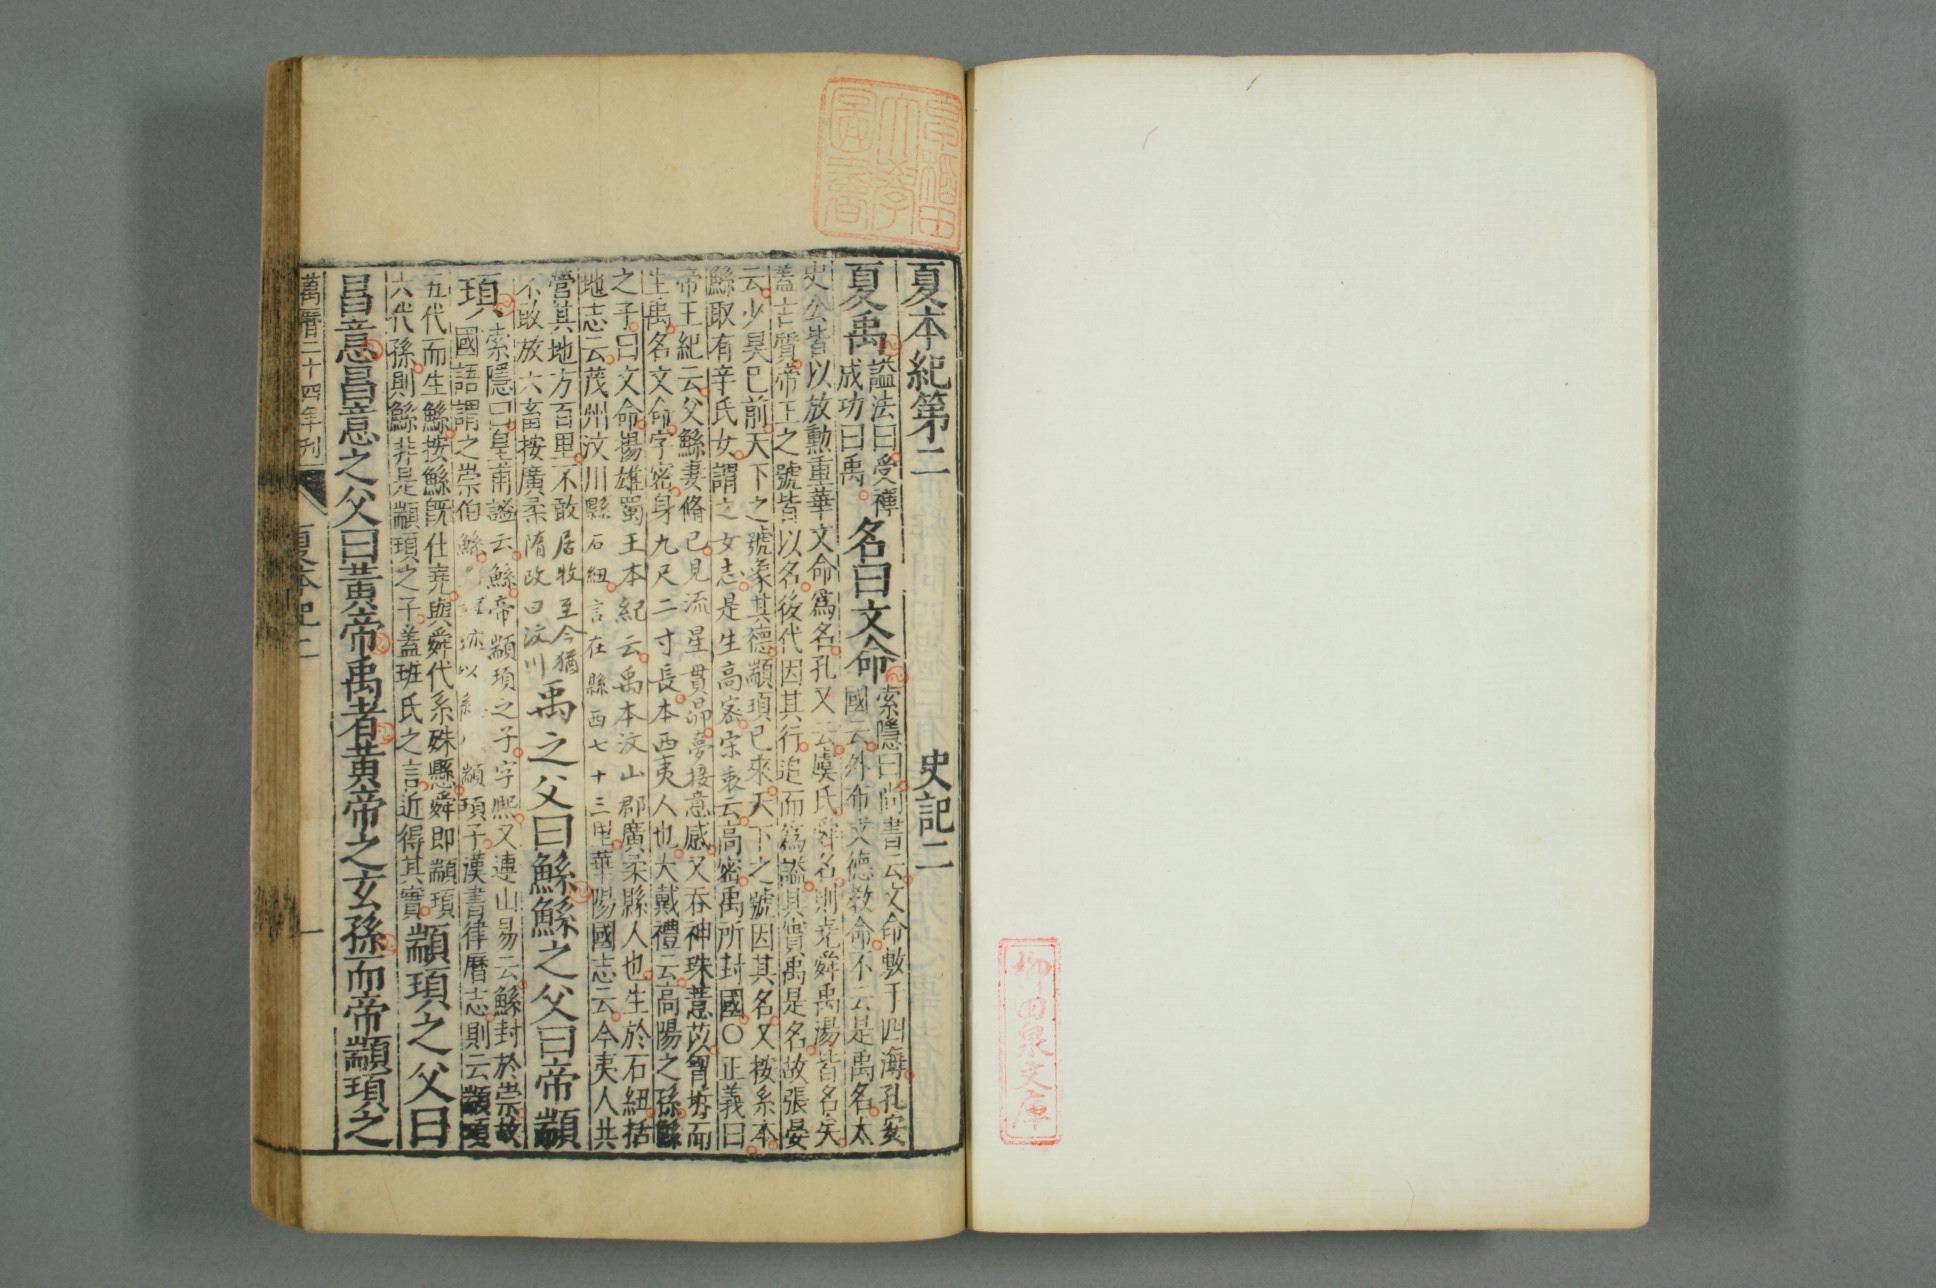 夏本紀第二 史記二
夏禹
謚法曰受禪
成功曰禹
名曰文命
索隱曰尚書云文命敷于四海孔安
國云外布文德教命不云是禹名太
史公皆以放勳重華文命爲名孔又云虞氏舜名則堯舜禹湯皆名矣
蓋古質帝王之號皆以名後代因其行追而爲謚其實禹是名故張晏
云少昊已前天下之號象其德顓頊已來天下之號因其名又按系本
鯀取有辛氏女謂之女志是生高密宋衷云高密禹所封國○正義曰
帝王紀云父鯀妻脩己見流星貫昴夢接意感又吞神珠薏苡胷坼而
生禹名文命字密身九尺二寸長本西夷人也大戴禮云高陽之孫鯀
之子曰文命揚雄蜀王本紀云禹本汶山郡廣柔縣人也生於石紐括
地志云茂州汶川縣石紐 言在縣西七十三里華陽國志云今夷人共
營其地方百里不敢居牧至今猶
不敢放六畜按廣柔隋改曰汶川
禹之父曰鯀鯀之父曰帝顓
頊
索隱曰皇甫謐云鯀帝顓頊之子字熙又連山易云鯀封於崇故
國語謂之崇伯鯀 亦以 顓頊子漢書律曆志則云顓頊
五代而生鯀按鯀旣仕堯與舜代系殊懸舜即顓頊
六代孫則鯀非是顓頊之子蓋班氏之言近得其實
顓頊之父曰
昌意昌意之父曰黃帝禹者黃帝之玄孫而帝顓頊之
萬曆二十四年刊 夏本紀二 一
早稻田大學圖書
柳田泉文庫